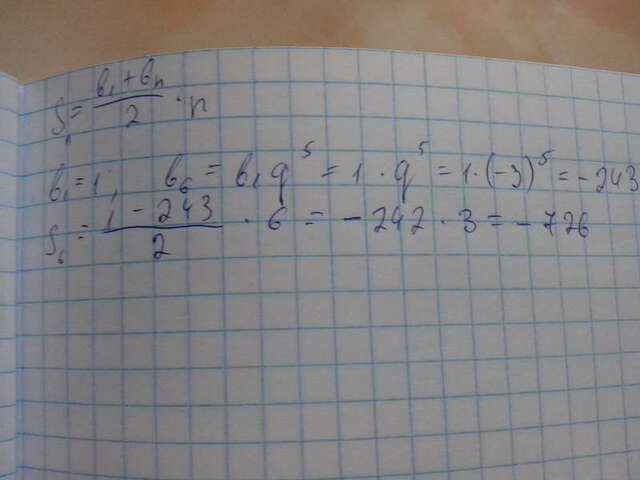 Sₙ = (b₁ + bₙ)/2 · n
b₁ = 1; b₆ = b₁q⁵ = 1 · q⁵ = 1 · (-3)⁵ = -243
S₆ = (1 - 243)/2 · 6 = -242 · 3 = -726